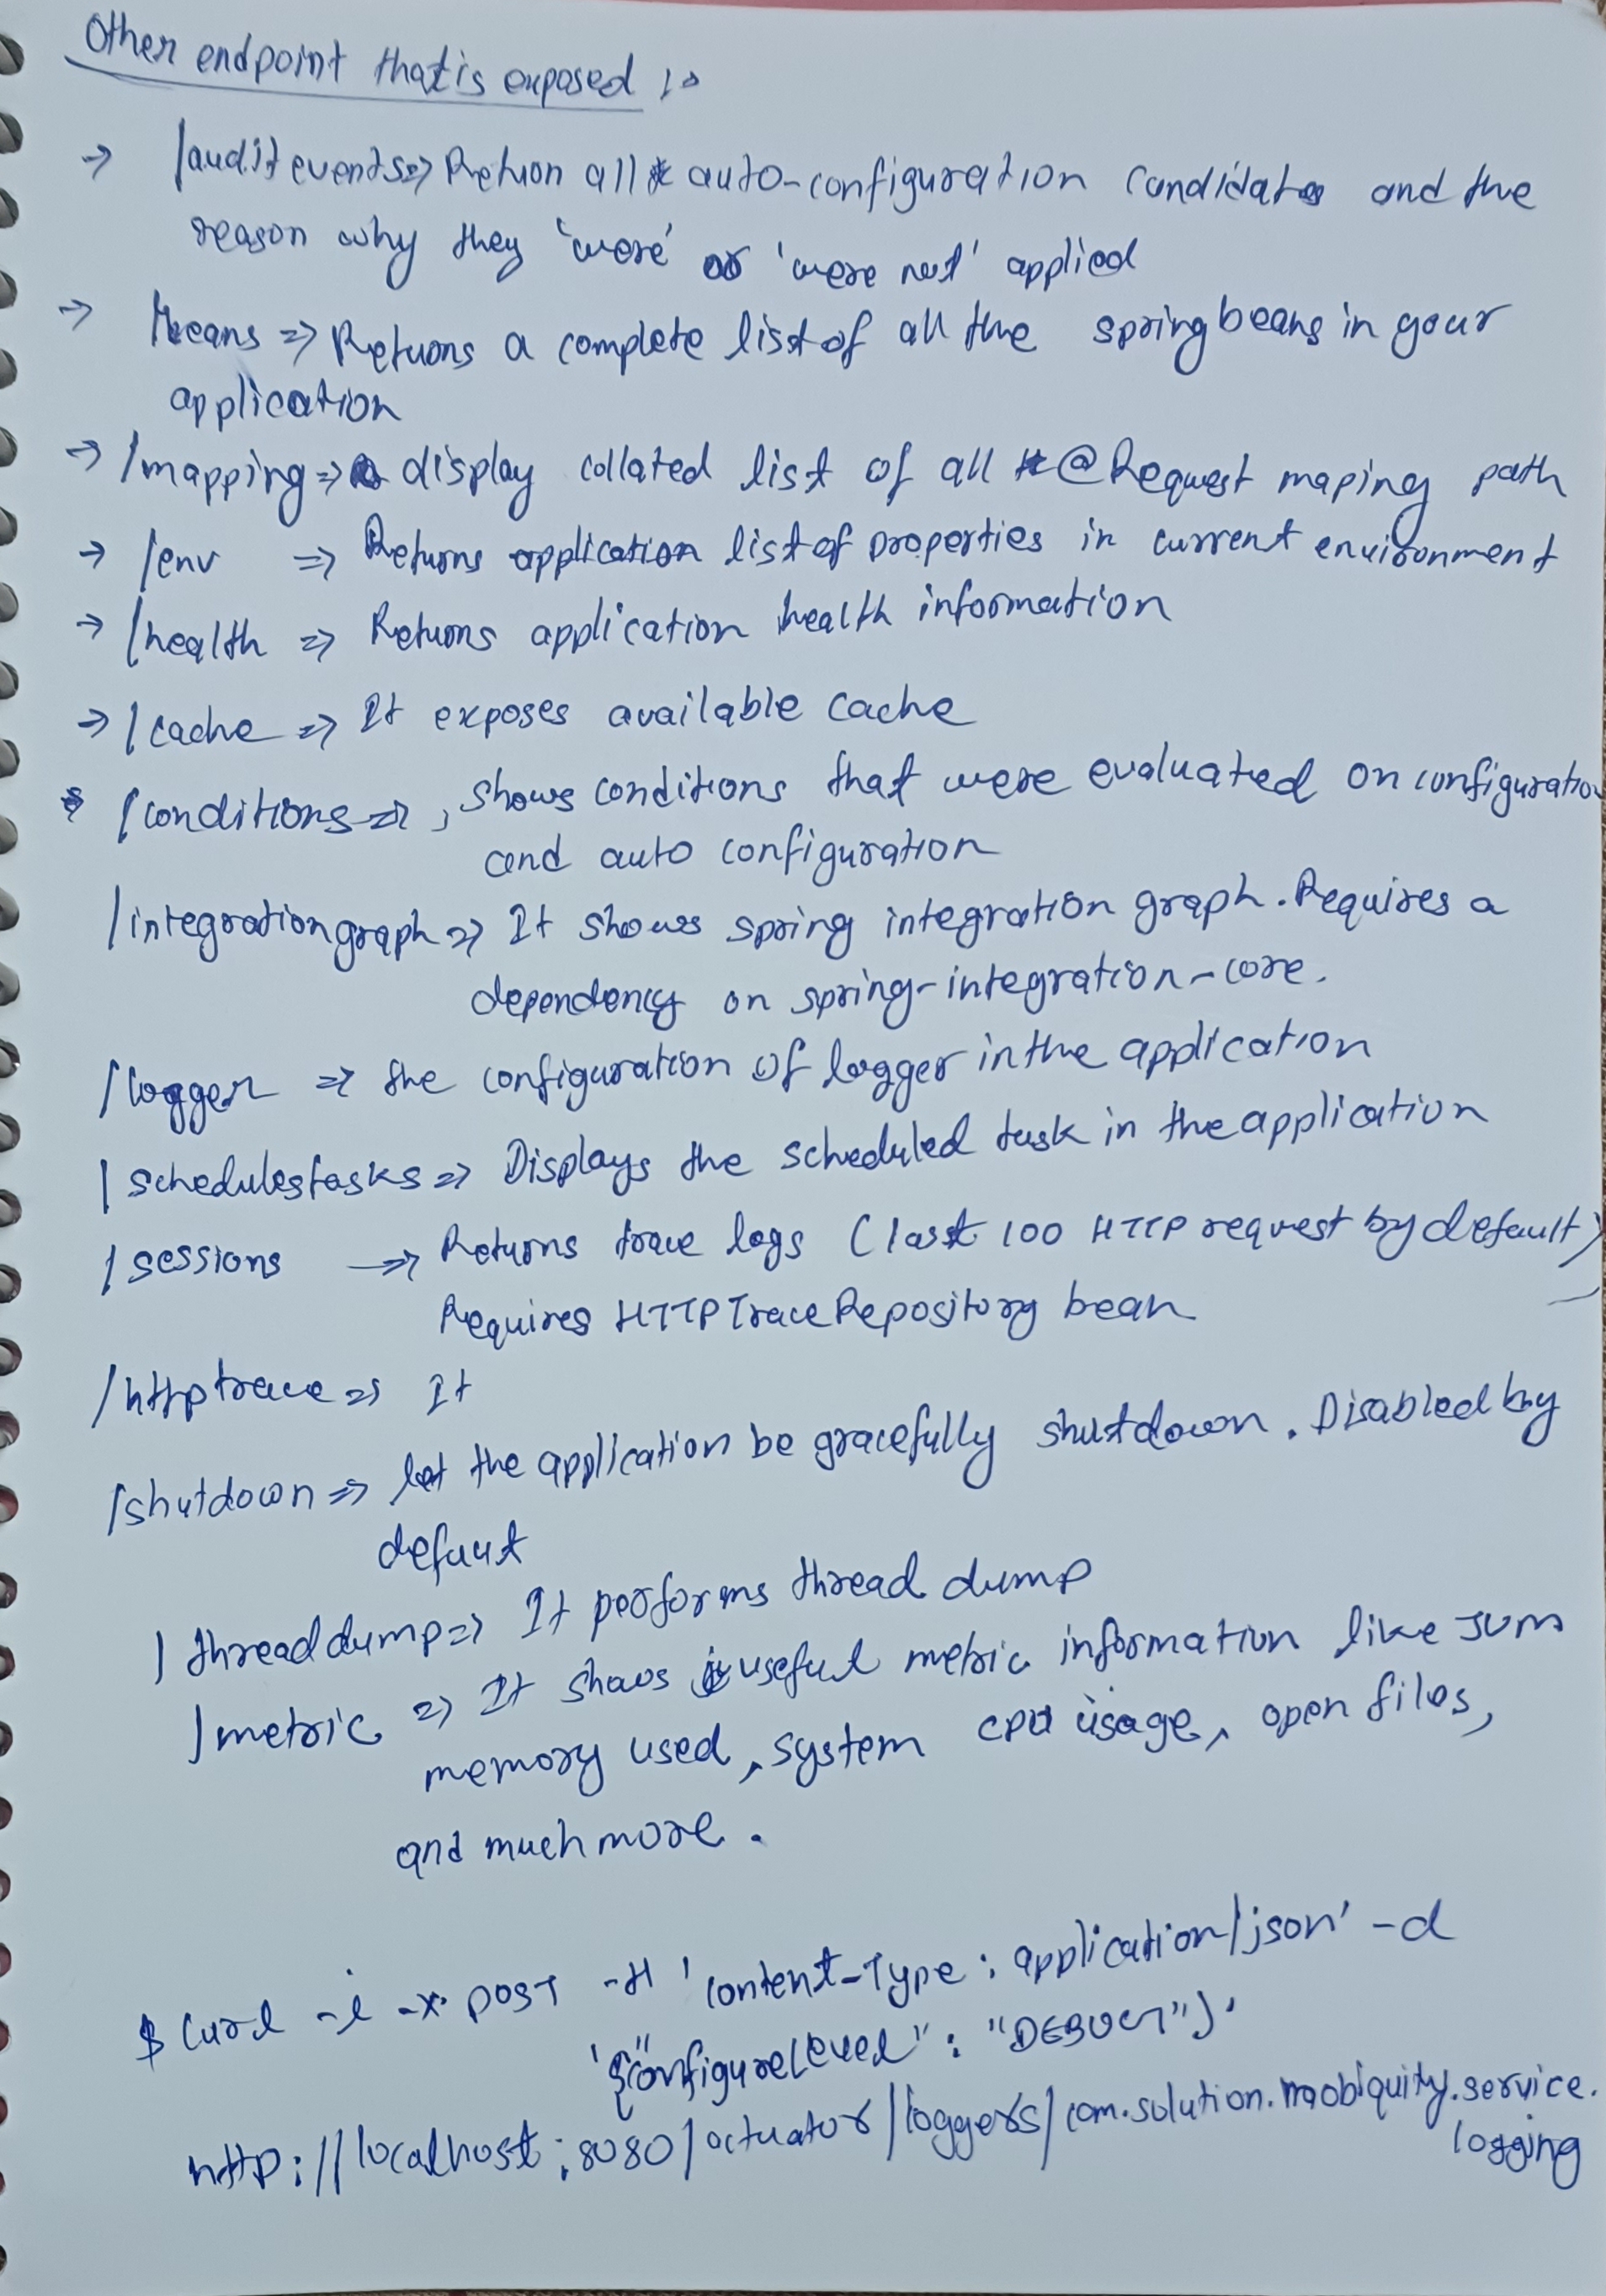 Other endpoint that is exposed :-
→ /auditevents => Return all auto-configuration candidates and the
reason why they 'were' or 'were not' applied
→ /beans => Returns a complete list of all the spring beans in your
application
→ /mapping => display collated list of all @Request maping path
→ /env => Returns application list of properties in current environment
→ /health => Returns application health information
→ /cache => It exposes available cache
/conditions => , shows conditions that were evaluated on configuration
and auto configuration
/integrationgraph => It shows spring integration graph. Requires a
dependency on spring-integration-core.
/logger => the configuration of logger in the application
/schedulestasks => Displays the scheduled task in the application
/sessions => Returns trace logs (last 100 HTTP request by default)
Requires HTTPTraceRepository bean
/httptrace => It
/shutdown => let the application be gracefully shutdown. Disabled by
defaut
/threaddump => It performs thread dump
/metric => It shows useful metric information like JVM
memory used, system cpu usage, open files,
and much more.
$ curl -i -x POST -H 'content-Type: application/json' -d
'{"configureLevel": "DEBUG"}'
http://localhost:8080/actuator/loggers/com.solution.mobiquity.service.
logging